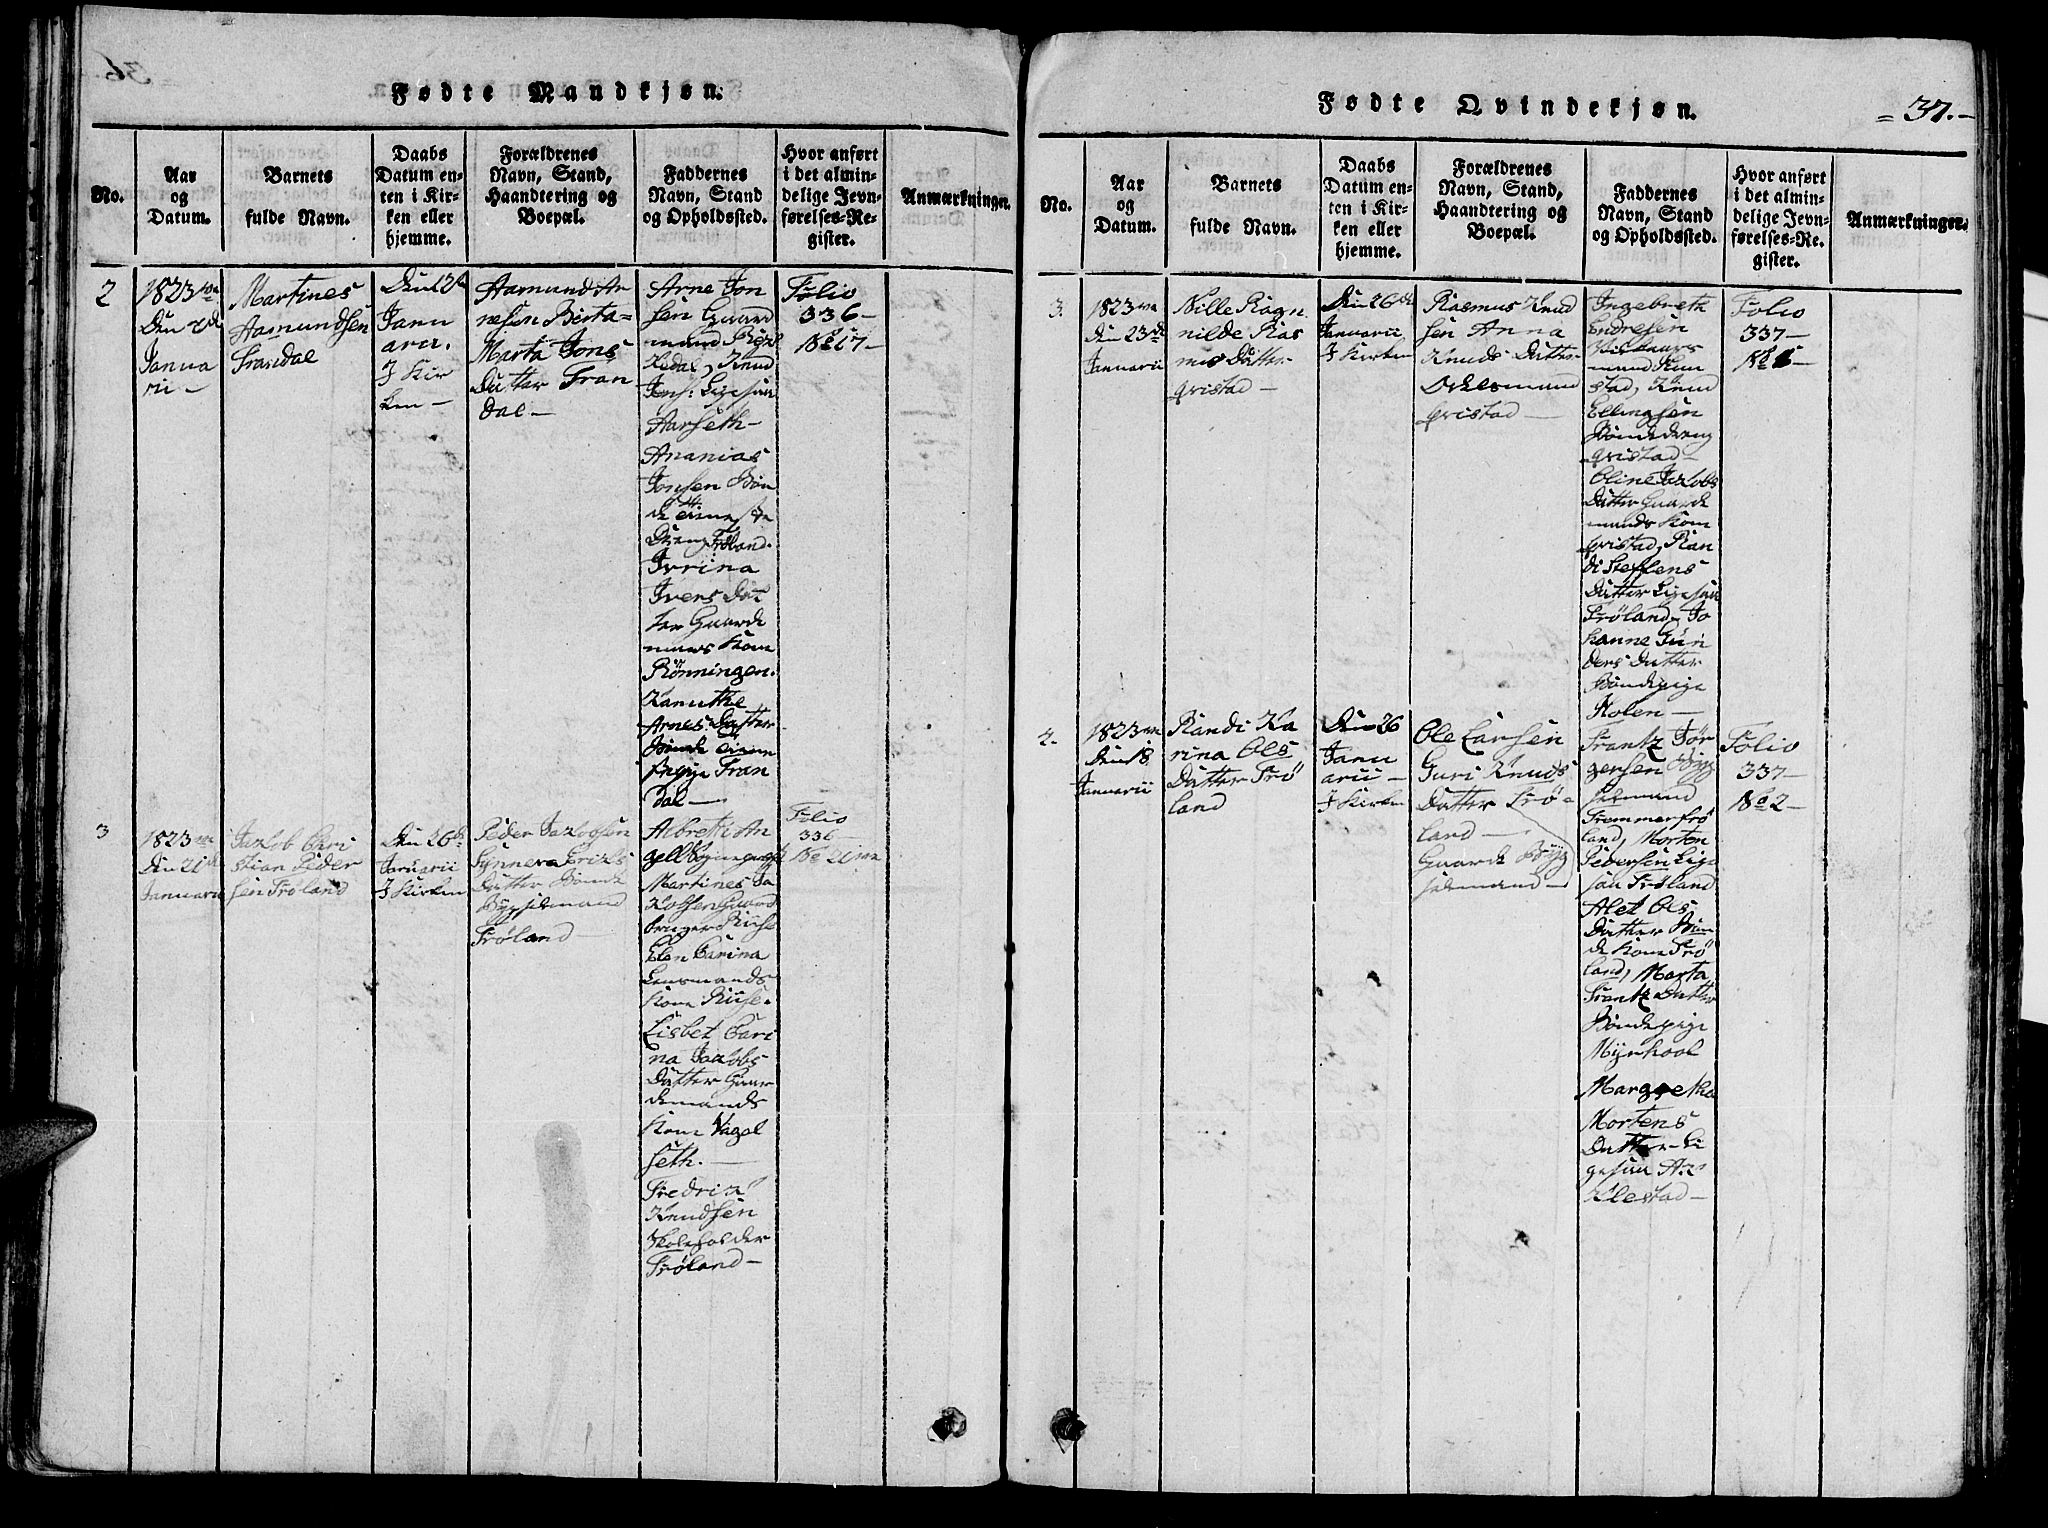 Fødte Mandkjøn.
No.
Aar
og
Datum.
Barnets
fulde Navn.
Daabs
Datum en-
ten i Kir-
ken eller
hjemme.
Forældrenes
Navn, Stand,
Haandtering og
Boepæl.
Faddernes
Navn, Stand
og Opholdssted.
Hvor anført
i det almin-
delige Jevn-
førelses-Re-
gister.
Anmærkninger.
2
1823
Den 2de
Janua
rii -
Martines
Aamundsen
Frandal
Den 12te
Janu
arii.
I Kir
ken -
Aamund Ar
nesen Berta=
Marta Jons
Datter Fran
dal -
Arne Jon
sen Gaard
mand
Knud
Jons: Ligesaa
Aarseth -
Ananias
Jonsen Bon
de
Dreng Frøland.
Ivrina
Ivers Dat
ter Gaard
mans Kone
Rönningen.
Kanutke
Arnes: Datter
Bonde
Fran
dal -
Folio
336 -
No 17 -
3
1823
Den 21de
Januarii
Jakob Cri
stian Peder
sen Frøland
Den 26de
Januarii
I Kirken
Peder Jakobsen
Synneva Eriks
Datter Bonde
Bygselmand
Frøland -
Albrett An
gell
Martines Ja
kobsen Gaard
bruger Riise
Elen Carina
Lensmands
Kone Riise.
Lisbet Cari
na Jakobs
Datter Gaar
demands
Kone Vagel
seth. -
Fredrik
Knudsen
Skoleholder
Frøland -
Folio
336 -
No 21
Fødte Qvindekjøn.
= 37. -
No.
Aar
og
Datum.
Barnets
fulde Navn.
Daabs
Datum en-
ten i Kir-
ken eller
hjemme.
Forældrenes
Navn, Stand,
Haandtering og
Boepæl.
Faddernes
Navn, Stand
og Opholdssted.
Hvor anført
i det almin-
delige Jevn-
førelses-Re-
gister.
Anmærkninger.
3.
1823
Den 23de
Januarii
Nille Ragn
nilde Ras
mus Datter
qvistad -
Den 26de
Januarii
I Kirken
Rasmus Knud
sen Anna
Knuds Datter
qvistad -
Ingebreth
Endresen
mand
stad, Knud
Ellingsen
Bondedreng
qvistad -
Oline Jakobs
Datter Gaarde
mands Kone
qvistad, Ran
di Steffens
Datter Ligesaa
Frøland - Jo
hanne Gun
ders Datter
Bondepige
Holen -
Folio
337 -
No 1 -
4.
1823
Den 18
Januarii
Randi Ka
rina Ols
Datter Frö
land
Den 26
Janu
arii -
I Kirken
Ole Larsen
Guri Knuds
Datter Frö=
land -
Gaarde Byg
selmand -
Frantz Jør
gensen Byg
selmand
Fremmerfrö
land, Morten
Pedersen Lige
saa Frøland
Alet Ols
Datter Bon
de Kone Frö
land, Marta
Frantz Datter
Bondepige
Myrhool
Margrethe
Mortens
Datter - Li
gesaa Az
klestad -
Folio
337 -
No 2 -